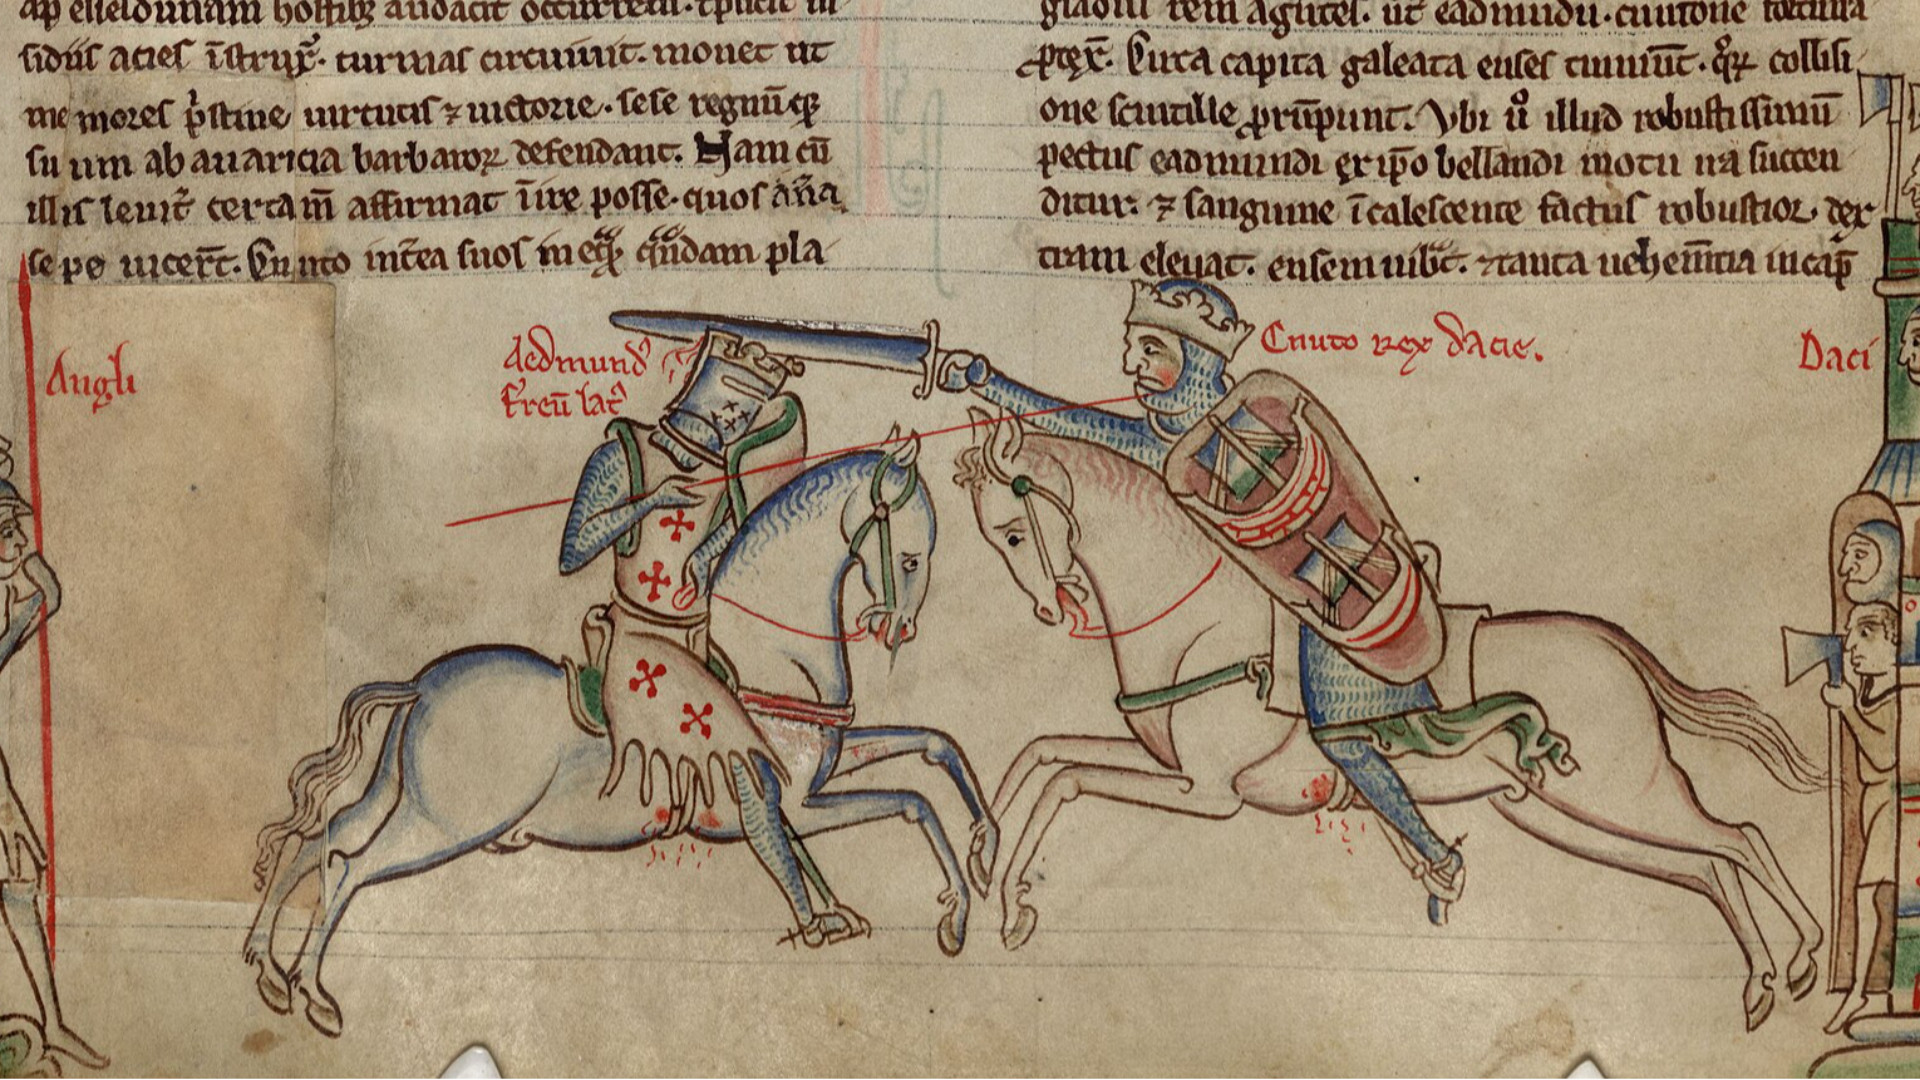 hostib; audacit
sidiis acies īstrux̄. turmas circuiuit. monet ut
memores p̓stine uirtutis ⁊ uictorie. sese regnūq;
suum ab auaricia barbaroꝝ defendant. Nam cū
illis leuit̄ certam̄ affirmat īire posse. quos an̄a
sepe uicer̄t. Cnuto int̄ea suos in pla
rem ut eadmūdū. cnutone
Circa capita galeata enses tinniūt. qͦꝝ collisi
one scintille prūpunt. Vbi uͦ illud robustissimū
pectus eadmundi ex ip̄o bellandi motu ira succen
ditur. ⁊ sanguine īcalescente factus robustior. dex
tram eleuat. ensem uib̄t. ⁊ tanta uehem̄tia in cap̄
Angli
Aedmundꝰ
ferreū latꝰ
Cnuto rex dacie.
Daci